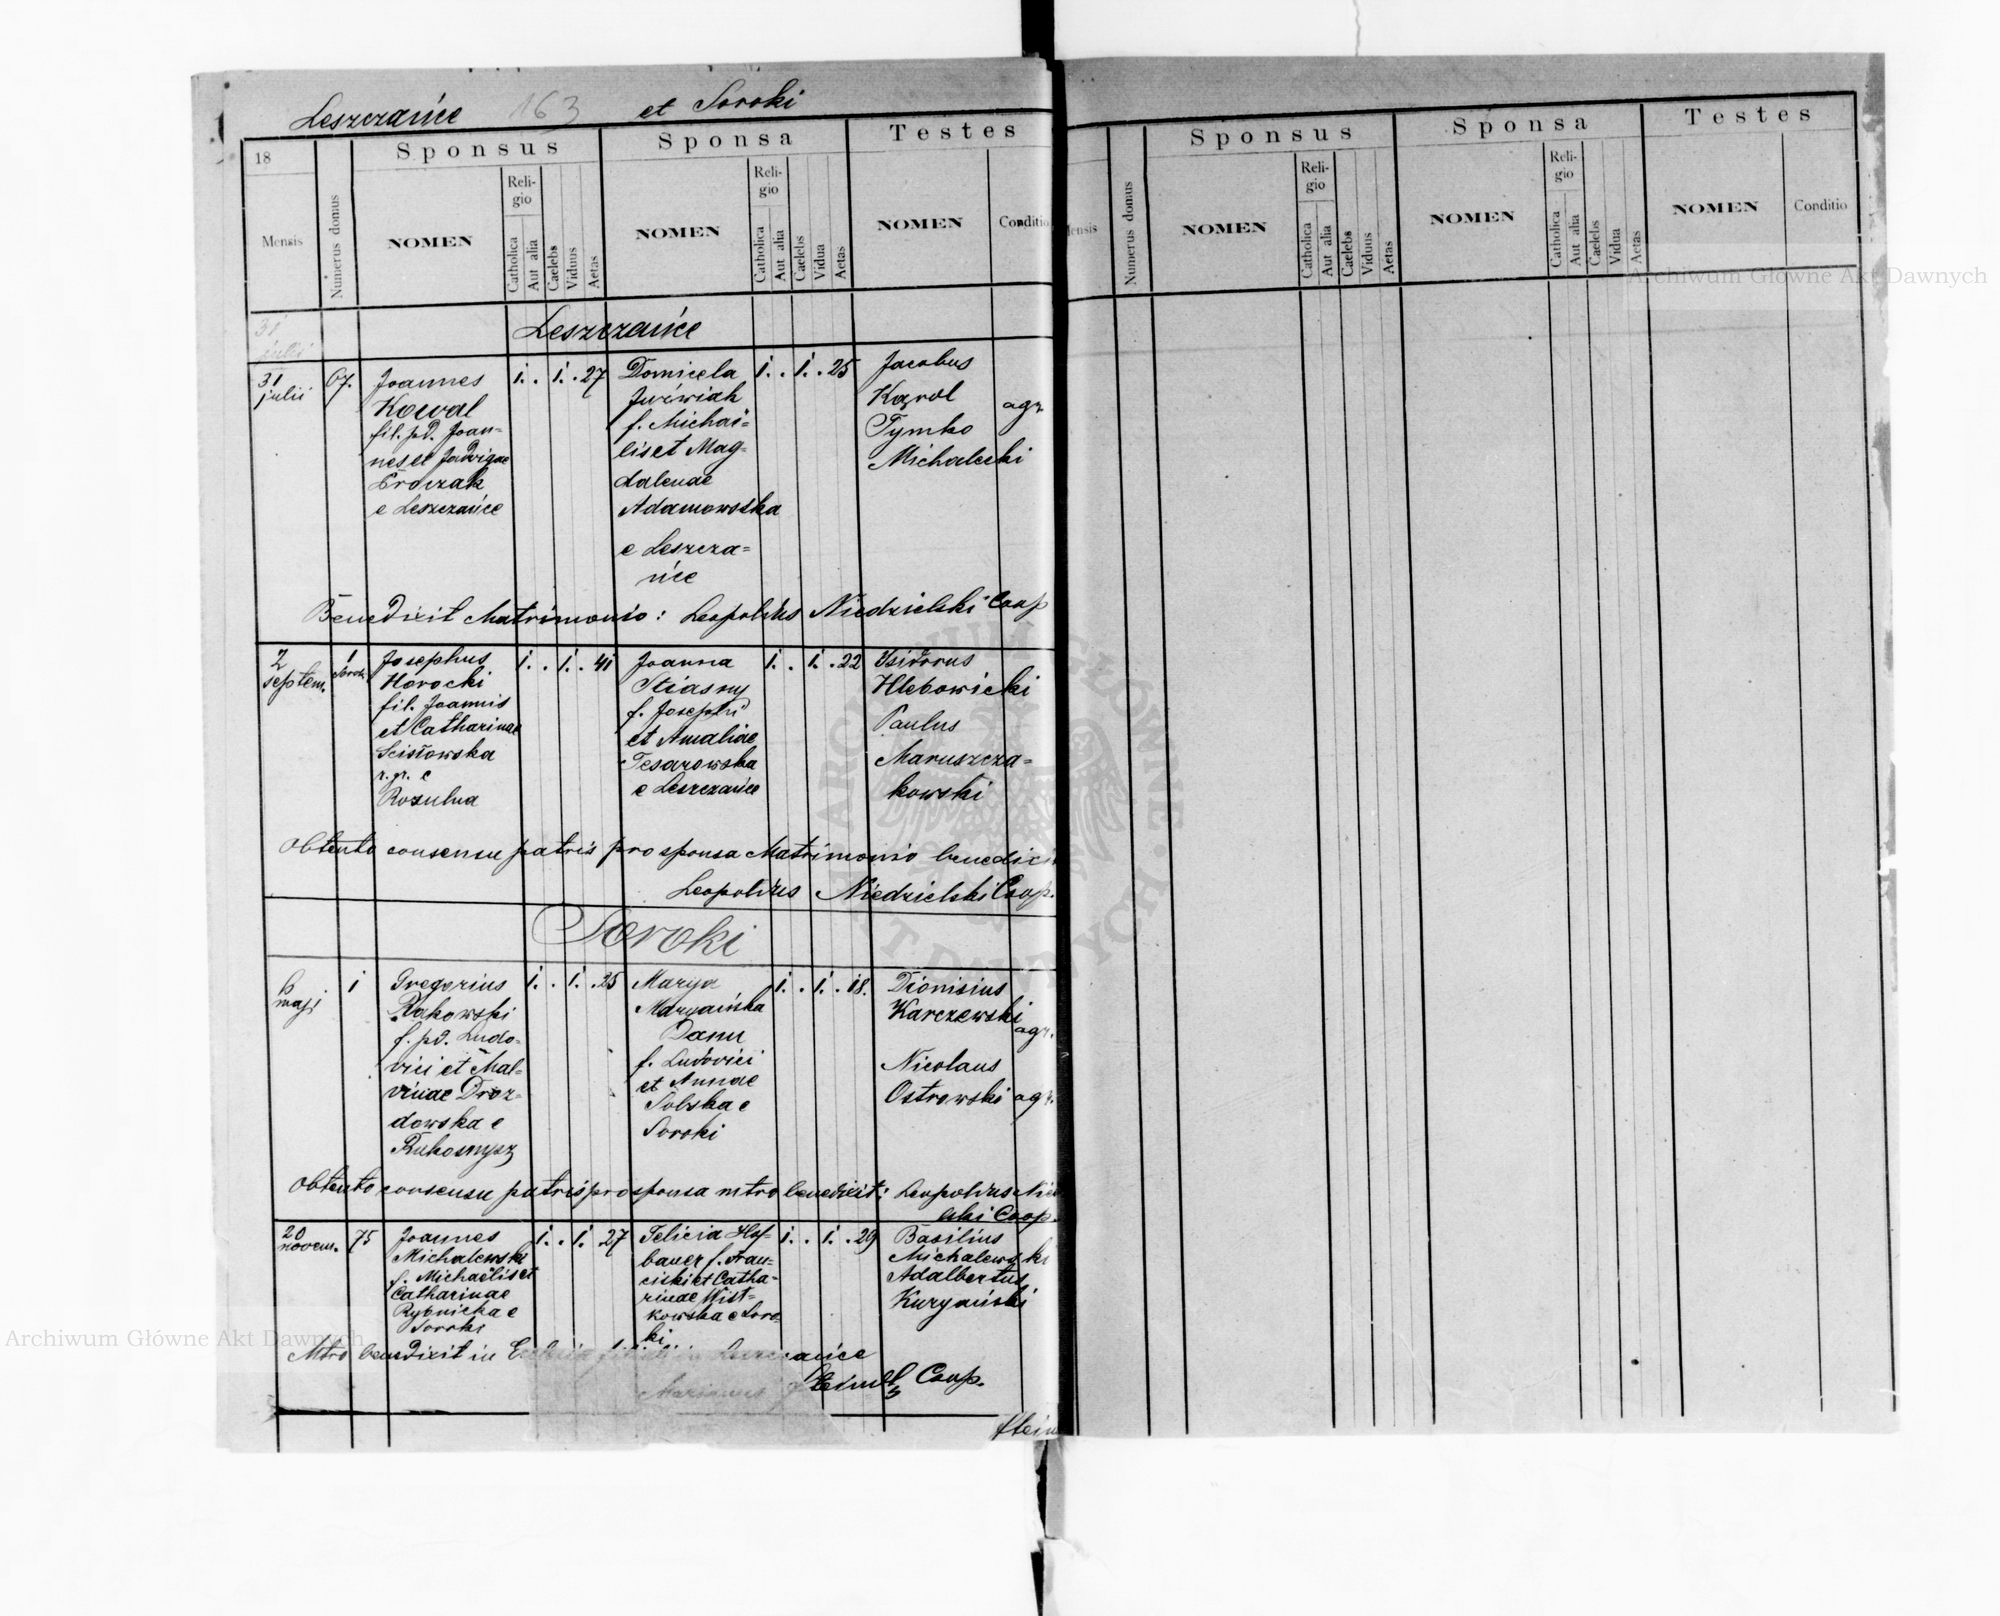 Leszczańce 163 et Soroki
18
Mensis
Numerus domus
Sponsus
NOMEN
Religio
Catholica
Aut alia
Caelebs
Viduus
Aetas
Sponsa
NOMEN
Religio
Catholica
Aut alia
Caelebs
Vidua
Aetas
Testes
NOMEN
Conditio
Leszczańce
31 julii
31 julii
67.
Joannes
Kowal
fil. pd. Joan=
nes et Jadvigae
e Leszczańce
1. . 1. . 27
Domicela
f. Michaë=
lis et Mag=
dalenae
Adamowska
e Leszcza=
ńce
1. . 1. . 25
Jacobus
Karol
Tymko
Michalecki
agr.
Benedixit Matrimonio: Leopoldus Niedzielski Coop
2 septem.
1 Sorok.
Josephus
Horocki
fil. Joannis
et Catharinae
Scisłowska
r. gr. e
Rosulna
1. . 1. . 41
Joanna
Stiasny
f. Josephi
et Amaliae
Tesarowska
e Leszczańce
1. . 1. . 22
Isidorus
Hlebowicki
Paulus
Maruszcza=
kowski
Obtento consensu patris pro sponsa Matrimonio benedixi
Leopoldus Niedzielski Coop.
Soroki
6 maji
1
Gregorius
Rakowski
f. pd. Ludo=
vici et Mal=
vinae Droz=
dowska e
Rukomysz
1. . 1. . 25
Marya
Maryańska
Danu
f. Ludovici
et Annae
Solska e
Soroki
1. . 1. . 18.
Dionisius
Karczewski
agr.
Nicolaus
Ostrowski agr.
Obtento consensu patris pro sponsa mtro benedixit: Leopoldus Nie
lski Coop.
20 novem.
75
Joannes
Michalewski
f. Michaëlis et
Catharinae
Rybnicka e
Soroki
1. . 1. 27
Felicia Hof=
bauer f. Fran=
ciski et Catha=
rinae Wist=
kowska e Soro=
ki
1. . 1. . 29
Basilius
Michalewski
Adalbertus
Kuryański
Mtro benedixit in Ecclesia filiali in Leszczańce
Marianus Coop.
Mensis
Numerus domus
Sponsus
NOMEN
Religio
Catholica
Aut alia
Caelebs
Viduus
Aetas
Sponsa
NOMEN
Religio
Catholica
Aut alia
Caelebs
Vidua
Aetas
Testes
NOMEN
Conditio
Archiwum Główne Akt Dawnych
Archiwum Główne Akt Dawnych
ARCHIWUM GŁÓWNE AKT DAWNYCH